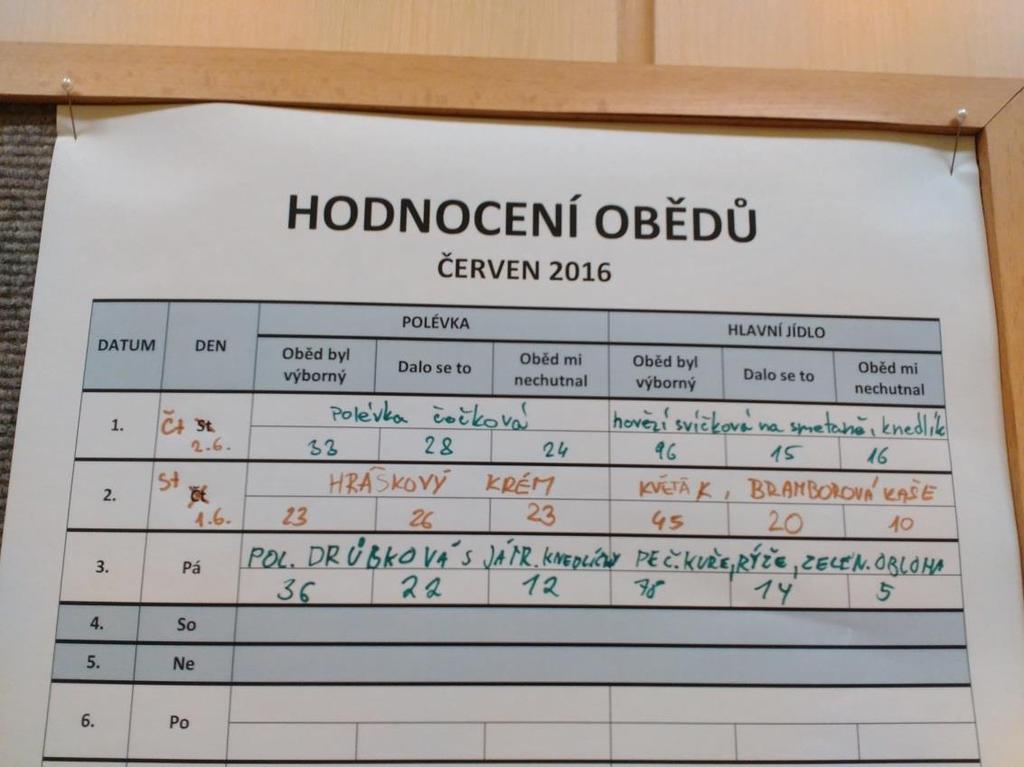 HODNOCENÍ OBĚDŮ
ČERVEN 2016
DATUM DEN POLÉVKA HLAVNÍ JÍDLO
Oběd byl výborný Dalo se to Oběd mi nechutnal Oběd byl výborný Dalo se to Oběd mi nechutnal
1. Čt St 2.6. Polévka čočková hovězí svíčková na smetaně, knedlík
33 28 24 96 15 16
2. St Čt 1.6. HRÁŠKOVÝ KRÉM KVĚTÁK, BRAMBOROVÁ KAŠE
23 26 23 45 20 10
3. Pá POL. DRŮBKOVÁ S JÁTR. KNEDLÍČKY PEČ. KUŘE, RÝŽE, ZELEN. OBLOHA
36 22 12 78 14 5
4. So
5. Ne
6. Po